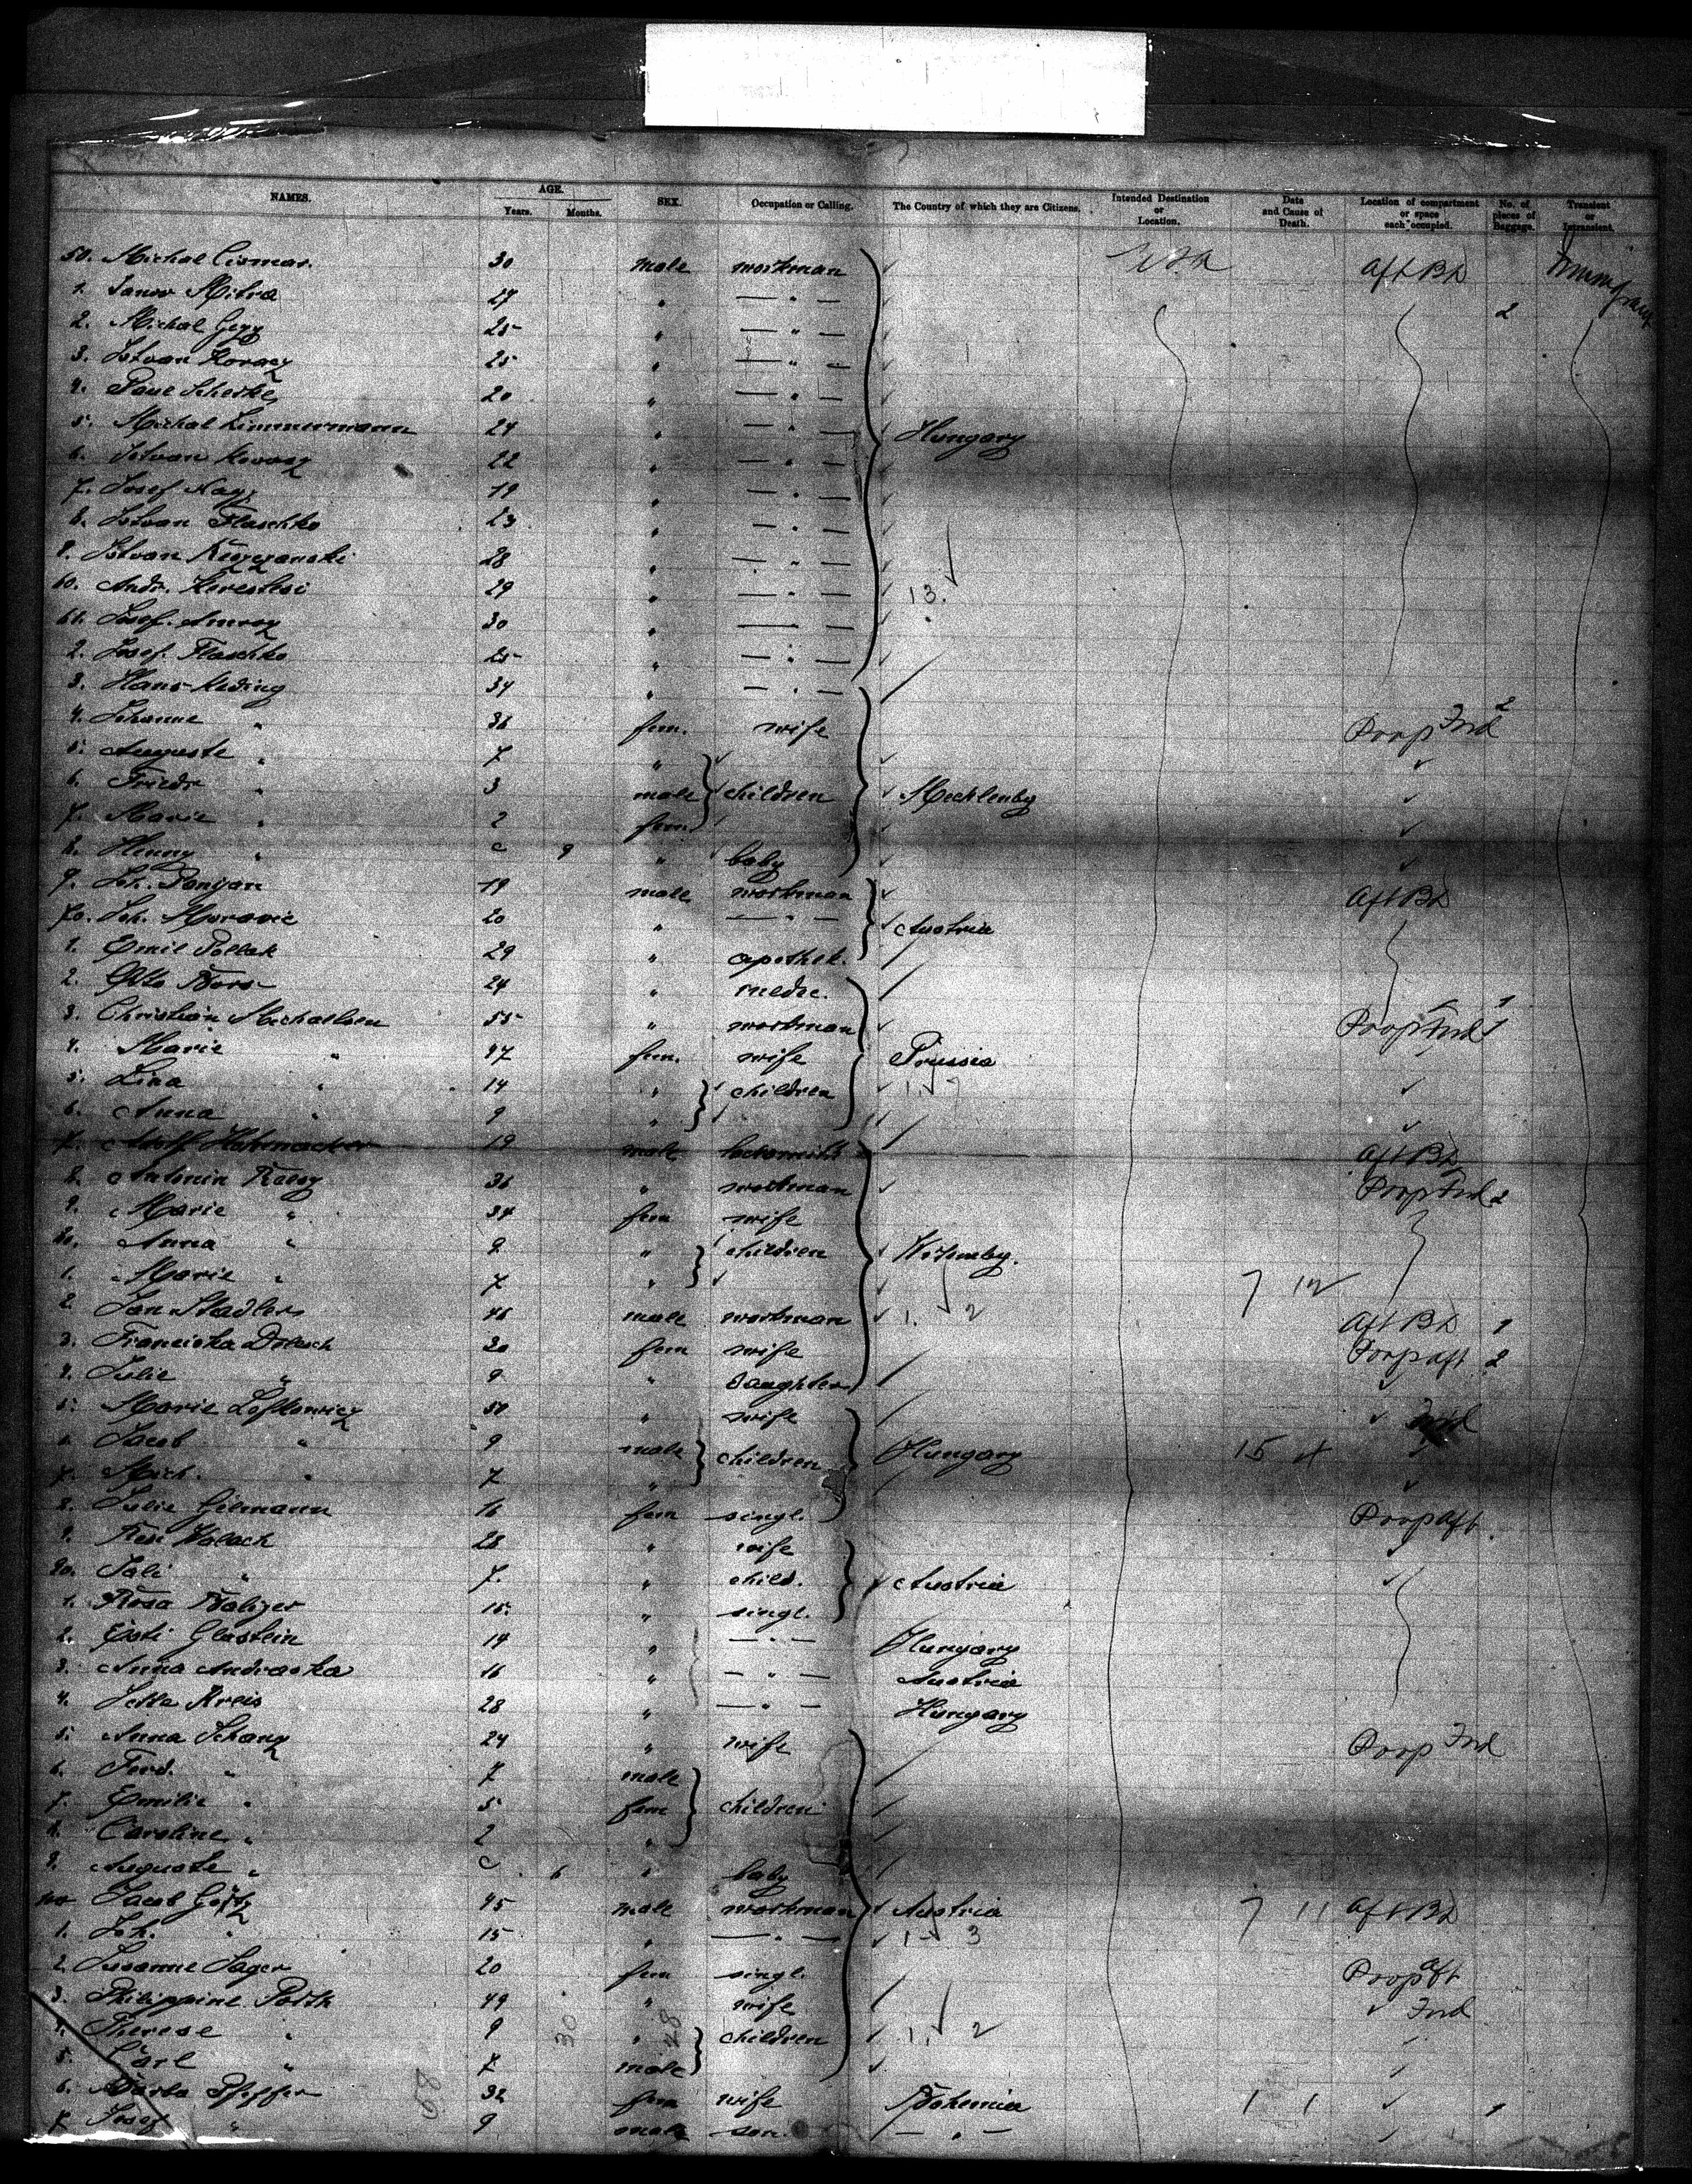 NAMES. AGE. Years. Months. SEX. Occupation or Calling. The Country of which they are Citizens. Intended Destination or Location. Date and Cause of Death. Location of compartment or space each occupied. No. of pieces of Baggage. Transient or Intransient.
50. Michal Cismar. 30 male workman USA Aft BD
1. Janos Mitra 27 " — " — 2
2. Michal Gegy 25 " — " —
3. Istvan Koracz 25 " — " —
4. Paul Scheike 20 " — " —
5. Michal Zimmermann 24 " — " — Hungary
6. Istvan 22 " — " —
7. Josef Nagy 19 " — " —
8. Istvan Flaschko 23 " — " —
9. Istvan 28 " — " —
60. Andr. Kerestesi 29 " — " — 13.
61. Josef 30 " — " —
2. Josef Flaschko 25 " — " —
3. Hans Reding 34 " — " —
4. Johanne " 36 fem. wife Poop Fwd 2
5. Auguste " 7 "
6. Friedr. " 3 male children Mecklenbg
7. Marie " 2 fem.
8. Henny " 9 " baby
9. Joh. Ponyan 19 male workman Aft BD
70. Joh. Moravic 20 " — " — Austria
1. Emil Pollak 29 " apothek.
2. Otto 24 " medic.
3. Christian Michaelsen 55 " workman Poop Fwd 1
4. Marie " 47 fem. wife Prussia
5. Lina " 14 " children
6. Anna " 9 "
7. Adolf Hutmacher 19 male locksmith Aft BD
8. Antonin 36 " workman Poop Fwd 2
9. Marie " 34 fem wife
80. Anna " 9 " children
1. Marie " 7 " 7 12
2. Jan Stadler 46 male workman 1. 2 Aft BD 1
3. Franciska 30 fem wife Poop aft 2
4. Julie " 9 " daughter
5. Marie Lefkowicz 50 " wife Fwd
6. Jacob " 9 male children Hungary 15
7. Mich. " 7 "
8. Julie Gilmann 16 fem singl. Poop aft
9. Resi Walach 28 " wife
90. Sali " 7. " child. Austria
1. Rosa 15. " singl.
2. Esti Glastein 14 " — " — Hungary
3. Anna Andraska 16 " — " — Austria
4. Jette Kreis 28 " — " — Hungary
5. Anna Schanz 24 " wife Poop Fwd
6. Ferd. " 7 male
7. Emilie " 5 fem children
8. Caroline " 2 "
9. Auguste " 6 " baby
Jacob Götz 45 male workman Austria 7 11 Aft BD
1. Joh. " 15 " — " — 1 3
2. Susanne Sager 20 fem singl. Poop aft
3. Philippine Poith 49 " wife Fwd
4. Therese " 9 " children 1. 2
5. Carl " 7 male
6. Barba Pfeffer 32 fem wife Bohemia 1 1 1
7. Josef " 9 male son. — " —
30 48
58